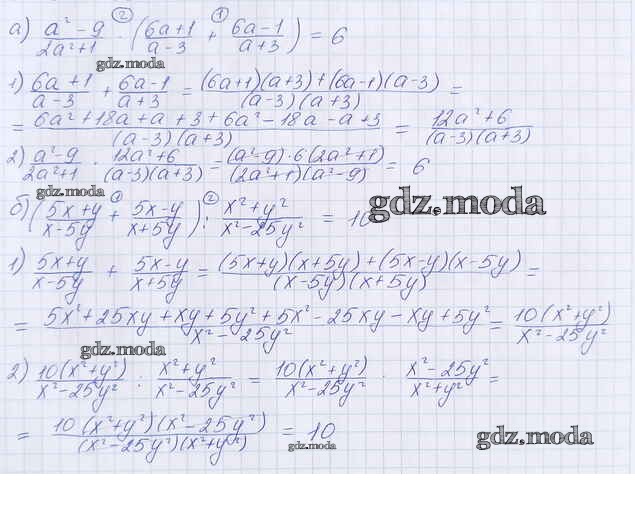 а) (a² - 9)/(2a² + 1) · ② ((6a+1)/(a-3) + ① (6a-1)/(a+3)) = 6
gdz.moda
1) (6a+1)/(a-3) + (6a-1)/(a+3) = ((6a+1)(a+3) + (6a-1)(a-3))/((a-3)(a+3)) =
= (6a² + 18a + a + 3 + 6a² - 18a - a + 3)/((a-3)(a+3)) = (12a² + 6)/((a-3)(a+3))
2) (a²-9)/(2a²+1) · (12a²+6)/((a-3)(a+3)) = ((a²-9)·6(2a²+1))/((2a²+1)(a²-9)) = 6
gdz.moda
б) ((5x+y)/(x-5y) + ① (5x-y)/(x+5y)) : ② (x²+y²)/(x²-25y²) = 10
gdz.moda
1) (5x+y)/(x-5y) + (5x-y)/(x+5y) = ((5x+y)(x+5y) + (5x-y)(x-5y))/((x-5y)(x+5y)) =
= (5x² + 25xy + xy + 5y² + 5x² - 25xy - xy + 5y²)/(x² - 25y²) = (10(x²+y²))/(x²-25y²)
gdz.moda
2) (10(x²+y²))/(x²-25y²) : (x²+y²)/(x²-25y²) = (10(x²+y²))/(x²-25y²) · (x²-25y²)/(x²+y²) =
= (10(x²+y²)(x²-25y²))/((x²-25y²)(x²+y²)) = 10
gdz.moda
gdz.moda